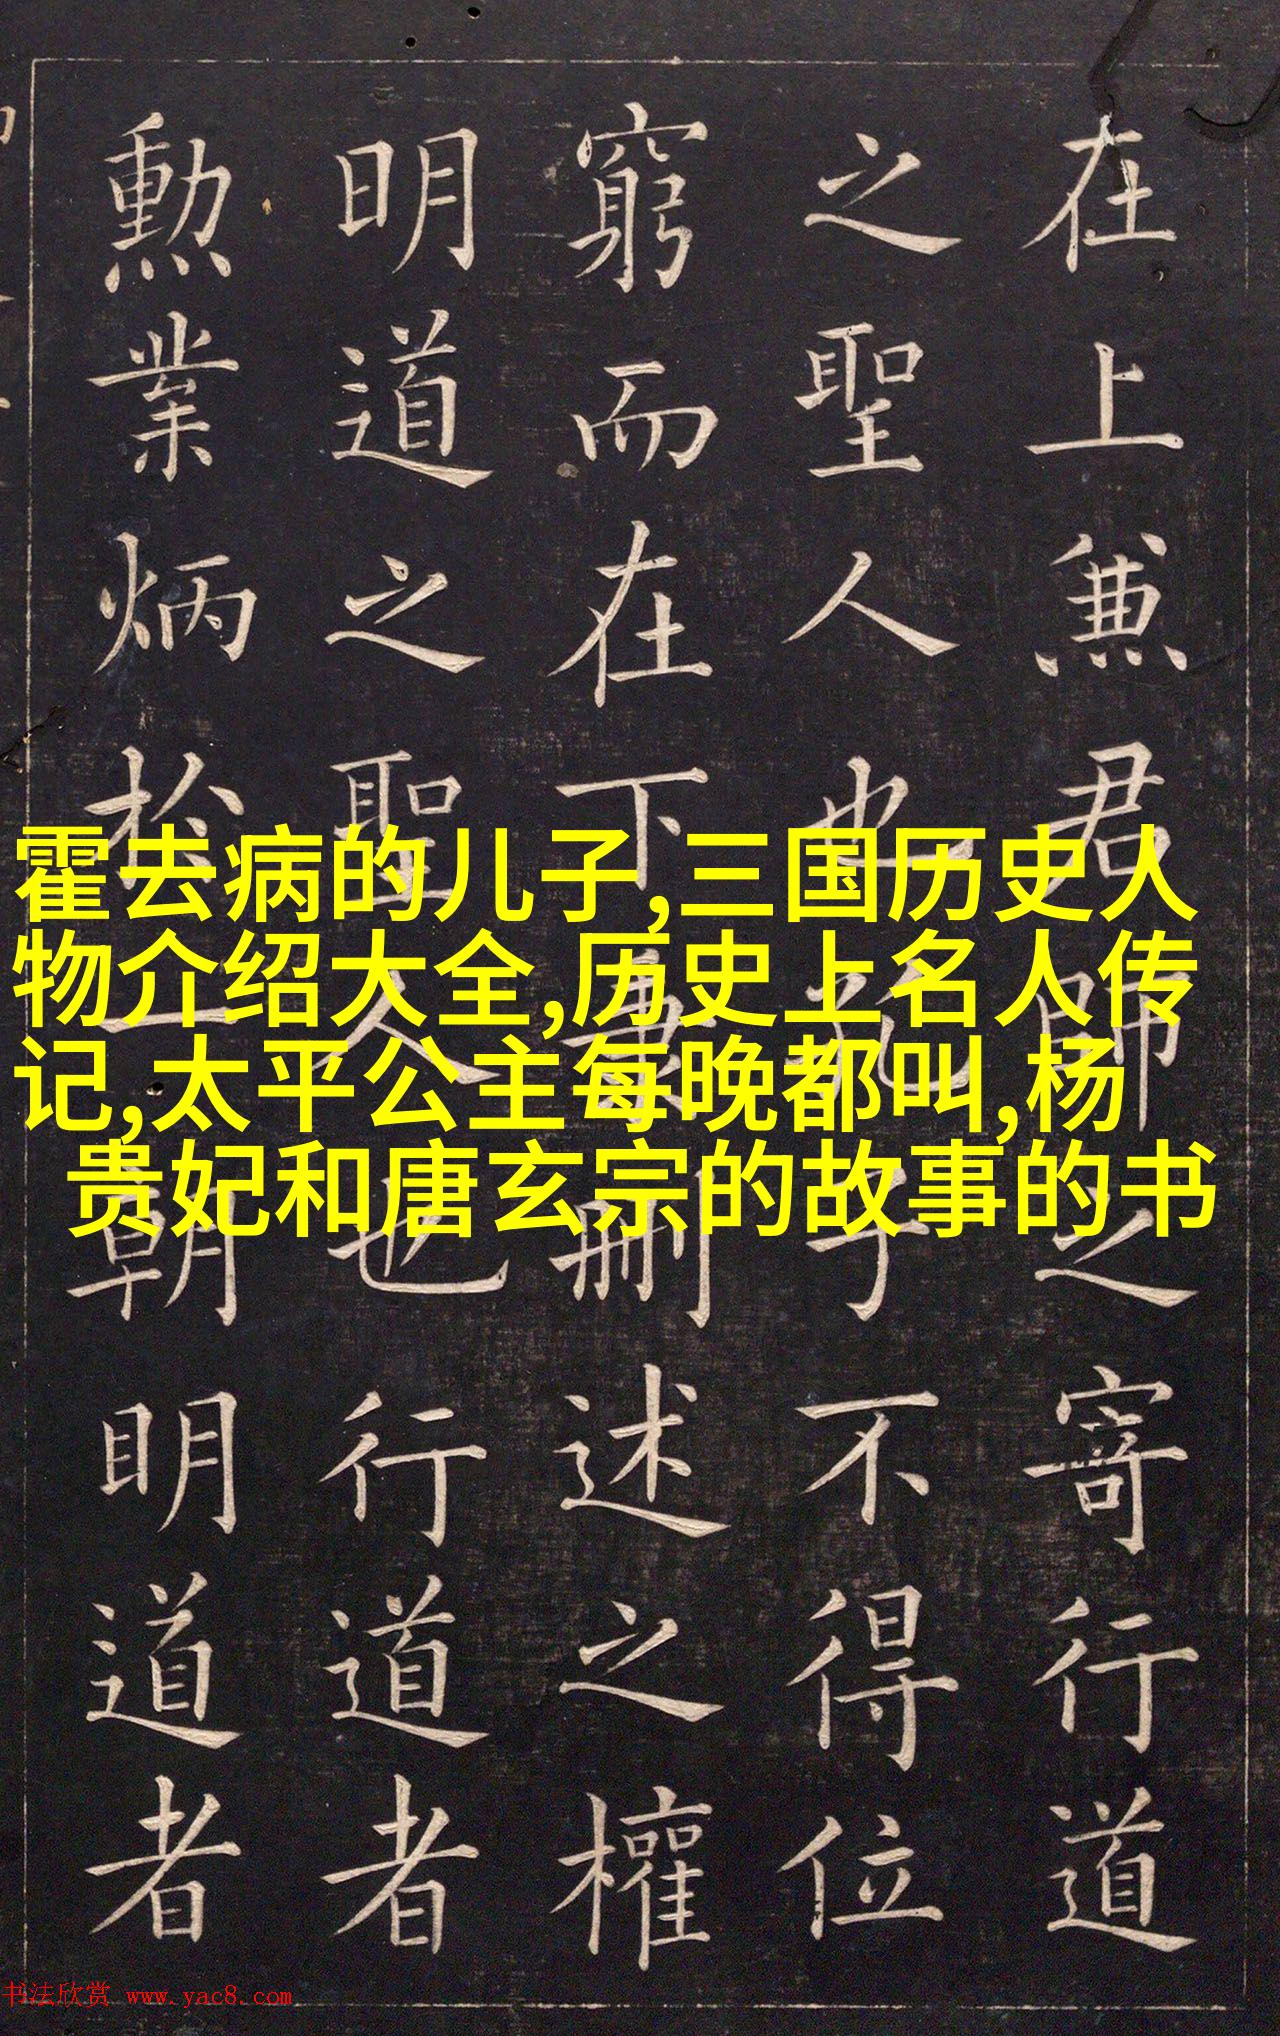 在上兼君師之寄行道
之聖人也孔子不得位
窮而在下兼刪述之權
明道之聖人也行道者
勳業炳扵一朝明道者
霍去病的儿子,三国历史人
物介绍大全,历史上名人传
记,太平公主每晚都叫,杨
贵妃和唐玄宗的故事的书
书法欣赏 www.yac8.com